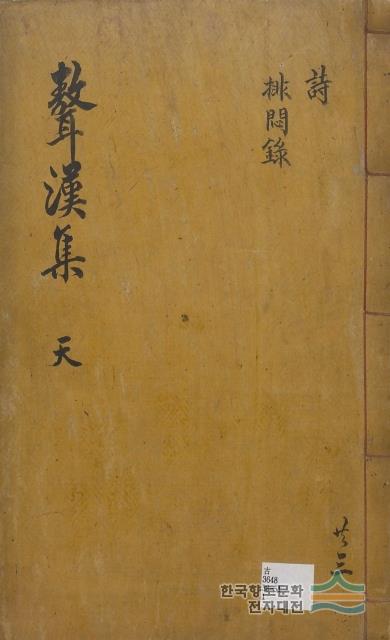 詩
排悶錄
聱漢集 天
共三
古
3648
한국향토문화
전자대전